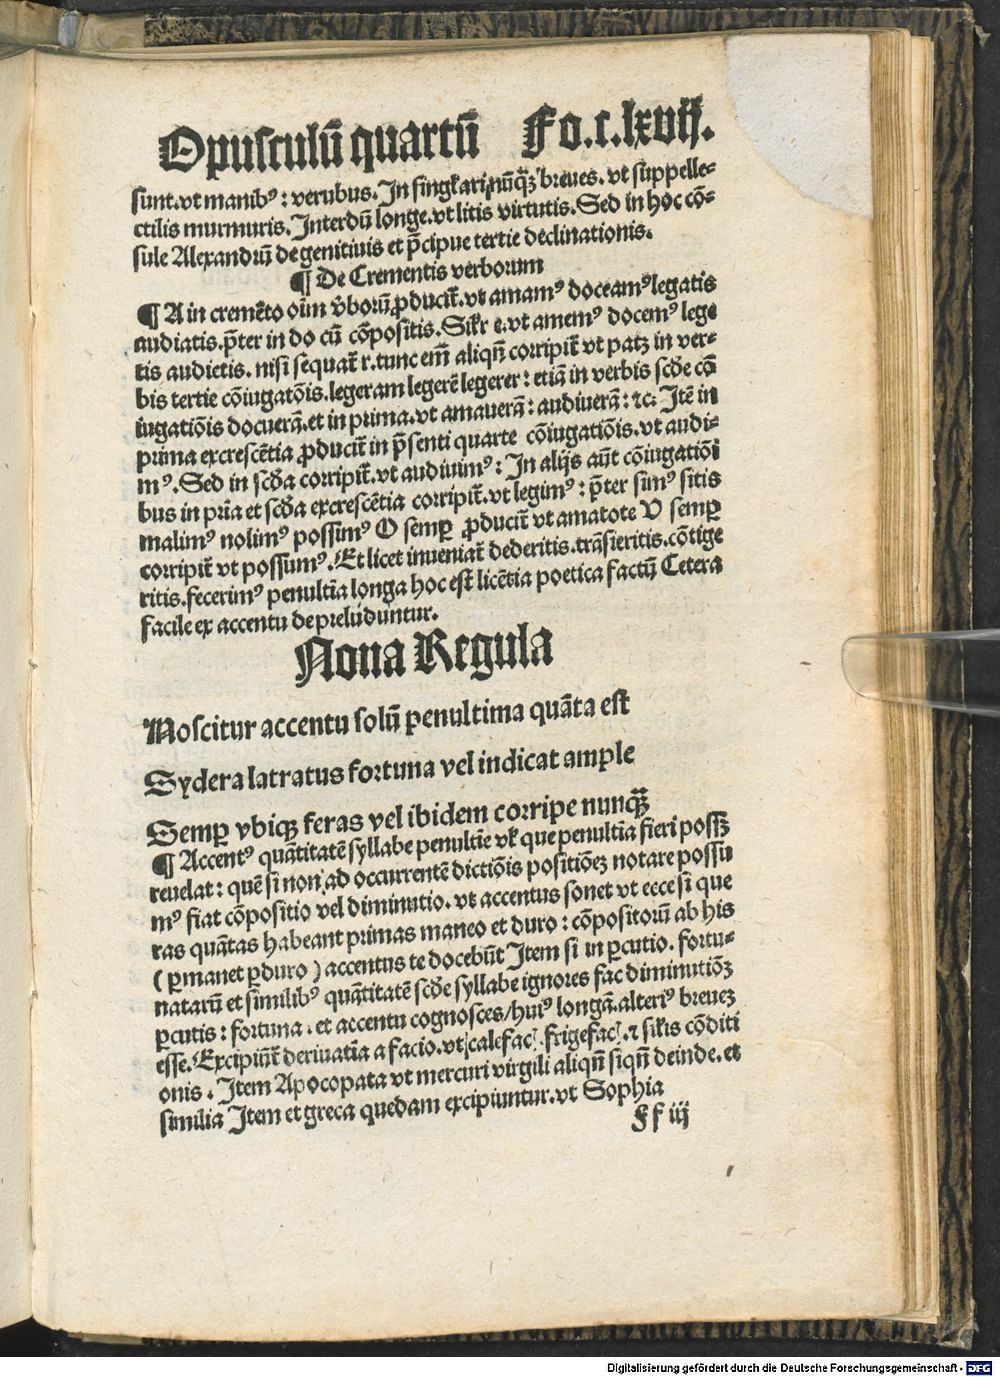 Opusculū quartū Fo.c.lxvij.
sunt.vt manibꝰ : verubus. In singl̄ari nūq̄ꝫ breues. vt suppelle-
ctilis murmuris. Interdū longe.vt litis virtutis. Sed in hoc cō-
sule Alexandrū de genitiuis et p̄cipue tertie declinationis.
¶ De Crementis verborum
¶ A in cremēto oīm v̄borū ꝓducit̄.vt amamꝰ doceamꝰ legatis
audiatis.p̄ter in do cū cōpositis. Sil̄r e.vt amemꝰ docemꝰ lege
tis audietis. nisi sequat̄ r.tunc em̄ aliqn̄ corripit̄ vt patꝫ in ver-
bis tertie cōiugatōis.legeram legerē legerer : etiā in verbis scd̄e cō
iugatiōis docuerā.et in prima.vt amauerā : audiuerā : ⁊c. Itē in
prima excrescētia ꝓducit̄ in p̄senti quarte cōiugatiōis.vt audi-
mꝰ. Sed in scd̄a corripit̄.vt audiuimꝰ : In alijs aūt cōiugatiōi
bus in pria et scd̄a excrescētia corripit̄.vt legimꝰ : p̄ter simꝰ sitis
malimꝰ nolimꝰ possimꝰ O semꝑ ꝓducit̄ vt amatote V semꝑ
corripit̄ vt possumꝰ. Et licet inueniat̄ dederitis.trāsieritis.cōtige
ritis.fecerimꝰ penultīa longa hoc est licētia poetica factū Cetera
facile ex accentu depreludūntur.
Nona Regula
Noscitur accentu solū penultima quāta est
Sydera latratus fortuna vel indicat ample
Semꝑ vbiqꝫ feras vel ibidem corripe nunq̄ꝫ
¶ Accentꝰ quātitatē syllabe penultīe vl̄ que penultīa fieri possꝫ
reuelat : quē si non ad occurrentē dictiōis positiōeꝫ notare possu
mꝰ fiat cōpositio vel diminutio. vt accentus sonet vt ecce si que
ras quātas habeant primas maneo et duro : cōpositorū ab his
( ꝑmanet ꝑduro ) accentus te docebūt Item si in ꝑcutio. fortu-
natarū et similibꝰ quātitatē scd̄e syllabe ignores fac diminutiōꝫ
ꝑcutis : fortuna . et accentu cognosces/huiꝰ longā.alteriꝰ breueꝫ
esse. Excipiūt̄ deriuatīa a facio.vt calefac̄. frigefac̄. ⁊ sil̄is cōditi
onis . Item Apocopata vt mercuri virgili aliqn̄ siqn̄ deinde. et
similia Item et greca quedam excipiuntur.vt Sophia
ff iij